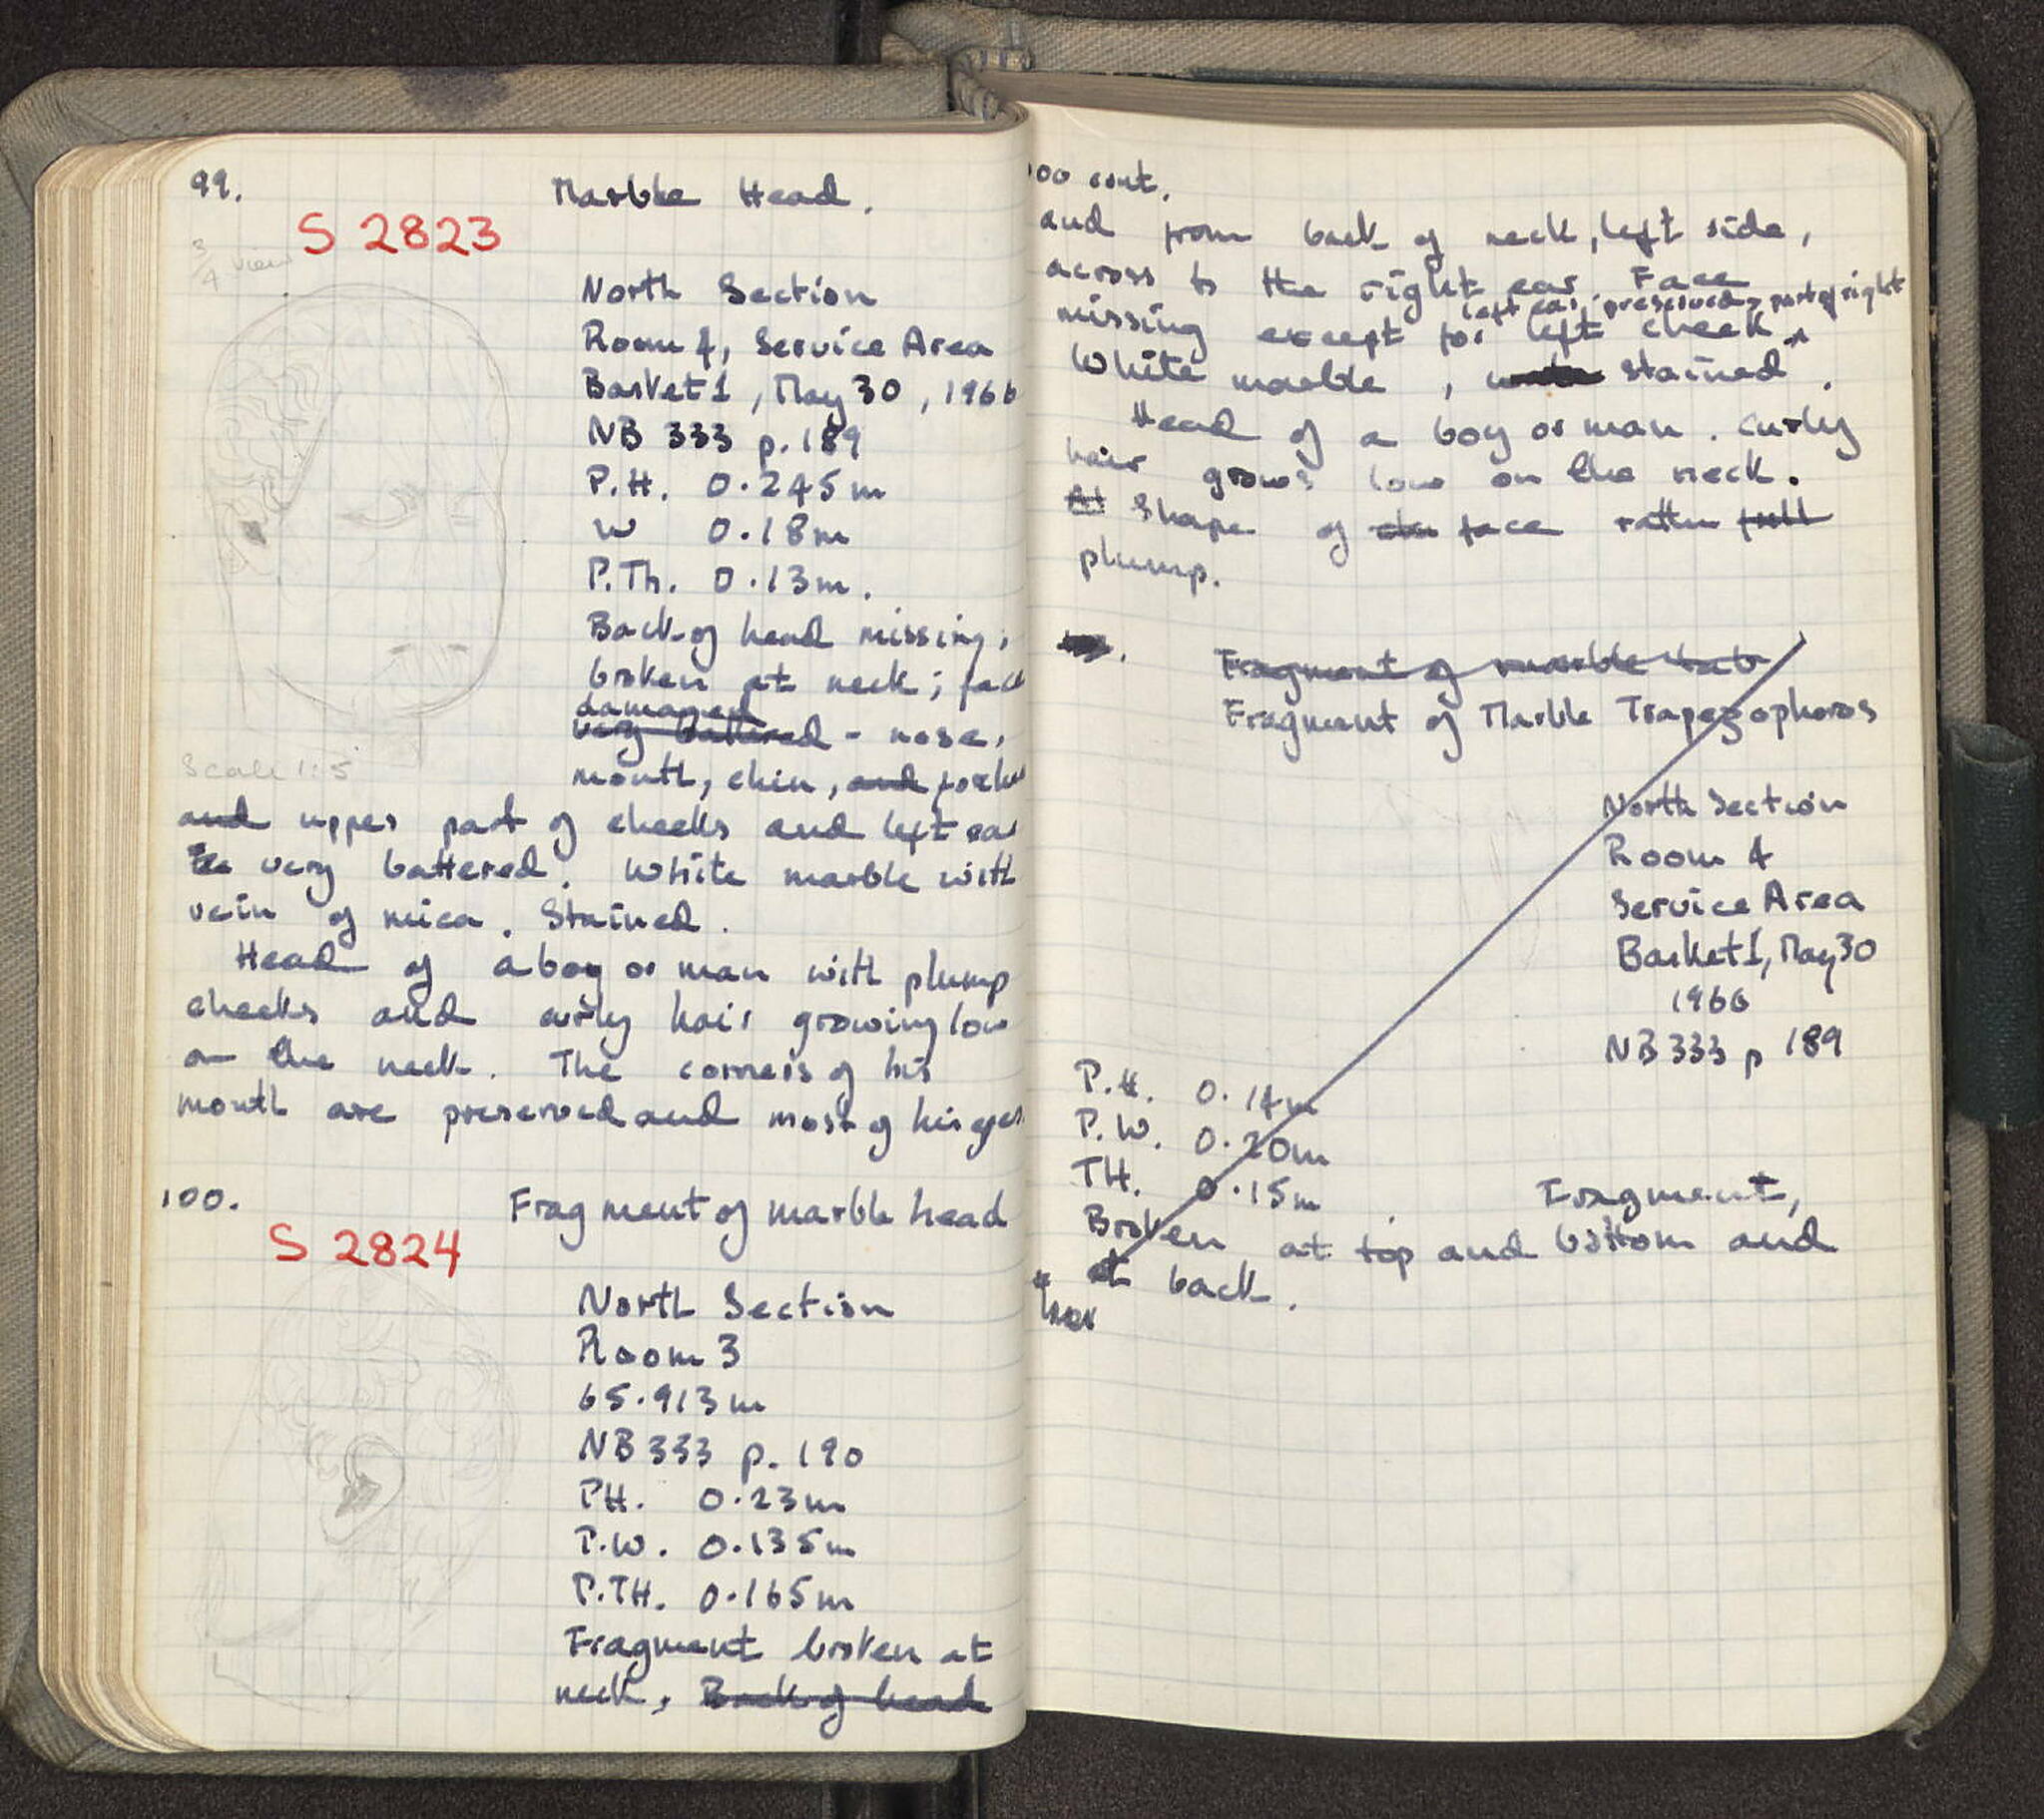 99.
Marble Head.
S 2823
3/4 view
North Section
Room 4, Service Area
Basket 1, May 30, 1966
NB 333 p. 189
P.H. 0.245m
W 0.18m
P.Th. 0.13m.
Back of head missing,
broken at neck; face
damaged
very battered - nose,
mouth, chin, and
Scale 1:5
and upper part of cheeks and left ear
very battered. White marble with
vein of mica. Stained.
Head of a boy or man with plump
cheeks and curly hair growing low
on the neck. The corners of his
mouth are preserved and most of his eyes
100.
Fragment of marble head
S 2824
North Section
Room 3
65.913m
NB 333 p. 190
PH. 0.23m
P.W. 0.135m
P.TH. 0.165m
Fragment broken at
neck, Back of head
100 cont.
and from back of neck, left side,
across to the right ear. Face
left ear preserved, part of right
missing except for left cheek ^
White marble, stained.
Head of a boy or man. Curly
hair grows low on the neck.
Shape of face rather full
plump.
Fragment of marble
Fragment of Marble Trapezophoros
North Section
Room 4
Service Area
Basket 1, May 30
1966
NB 333 p 189
P.H. 0.14m
P.W. 0.20m
TH. 0.15m
Fragment,
Broken at top and bottom and
at back.